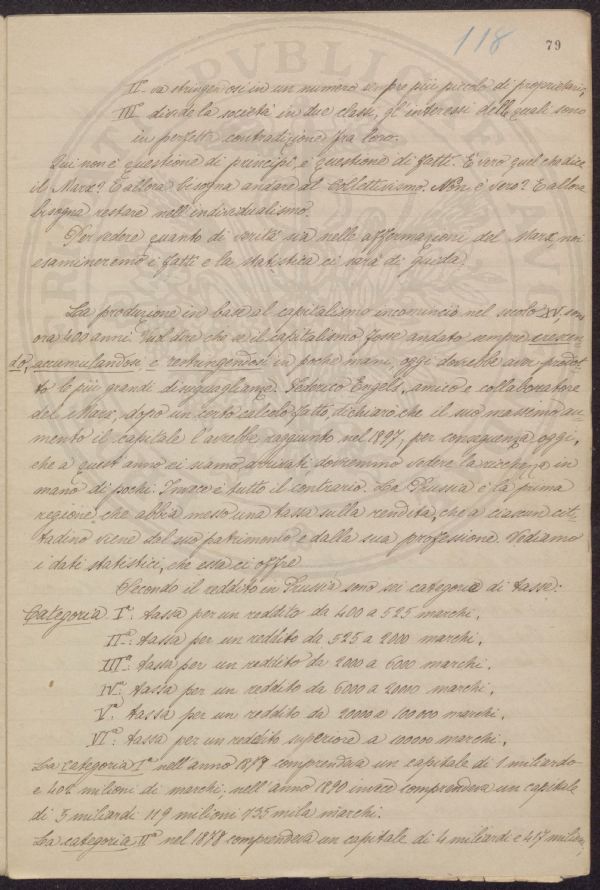 118
79
II° va stringendosi in un numero sempre più piccolo di proprietari;
III° divide la società in due classi, gl'interessi delle quali sono
in perfetta contradizione fra loro.
Qui non è questione di principî, è questione di fatti. È vero quel che dice
il Marx? E allora bisogna andare al Collettivismo. Non è vero? E allora
bisogna restare nell'individualismo.
Per vedere quanto di verità sia nelle affermazioni del Marx, noi
esamineremo i fatti e la statistica ci sarà di guida.
La produzione in base al capitalismo incominciò nel secolo XV, son
ora 400 anni. Vuol dire che se il capitalismo fosse andato sempre crescen-
do, accumulandosi e restringendosi in poche mani, oggi dovrebbe aver prodot-
to le più grandi disuguaglianze. Federico Engels, amico e collaboratore
del Marx, dopo un certo calcolo fatto, dichiarò che il suo massimo au-
mento il capitale l'avrebbe raggiunto nel 1897; per conseguenza oggi,
che a quest'anno ci siamo arrivati dovremmo vedere la ricchezza in
mano di pochi. Invece è tutto il contrario. La Prussia è la prima
regione, che abbia messo una tassa sulla rendita, che a ciascun cit-
tadino viene dal suo patrimonio e dalla sua professione. Vediamo
i dati statistici, che essa ci offre
Secondo il reddito in Prussia sono sei categorie di tasse:
Categoria Iª: tassa per un reddito da 400 a 525 marchi.
IIª: tassa per un reddito da 525 a 2000 marchi.
IIIª: tassa per un reddito da 2000 a 6000 marchi.
IVª: tassa per un reddito da 6000 a 20000 marchi.
Vª: tassa per un reddito da 20000 a 100000 marchi.
VIª: tassa per un reddito superiore a 100000 marchi.
La categoria Iª nell'anno 1878 comprendeva un capitale di 1 miliardo
e 402 milioni di marchi; nell'anno 1890 invece comprendeva un capitale
di 3 miliardi 119 milioni 735 mila marchi.
La categoria IIª nel 1878 comprendeva un capitale di 4 miliardi e 417 milioni,